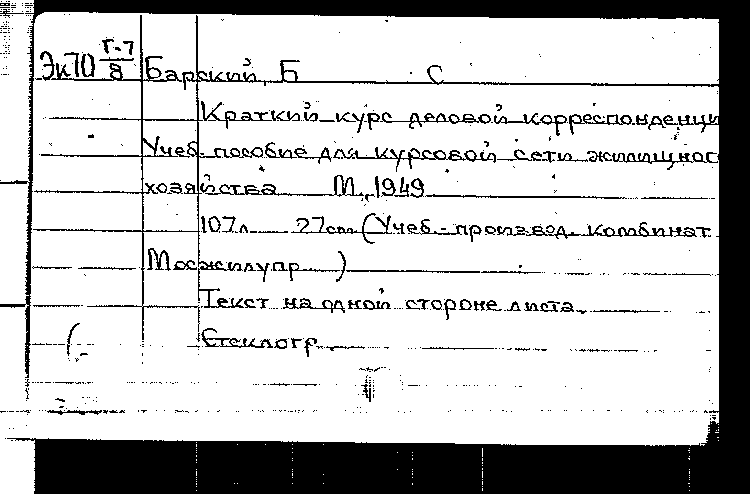 Эк70 Г-7/8 Барский, Б С
Краткий курс деловой корреспонденци
Учеб. пособие для курсовой сети жилищног
хозяйства М., 1949
107л. 27см (Учеб.-производ. комбинат
Мосжилупр.)
Текст на одной стороне листа.
Стеклогр.